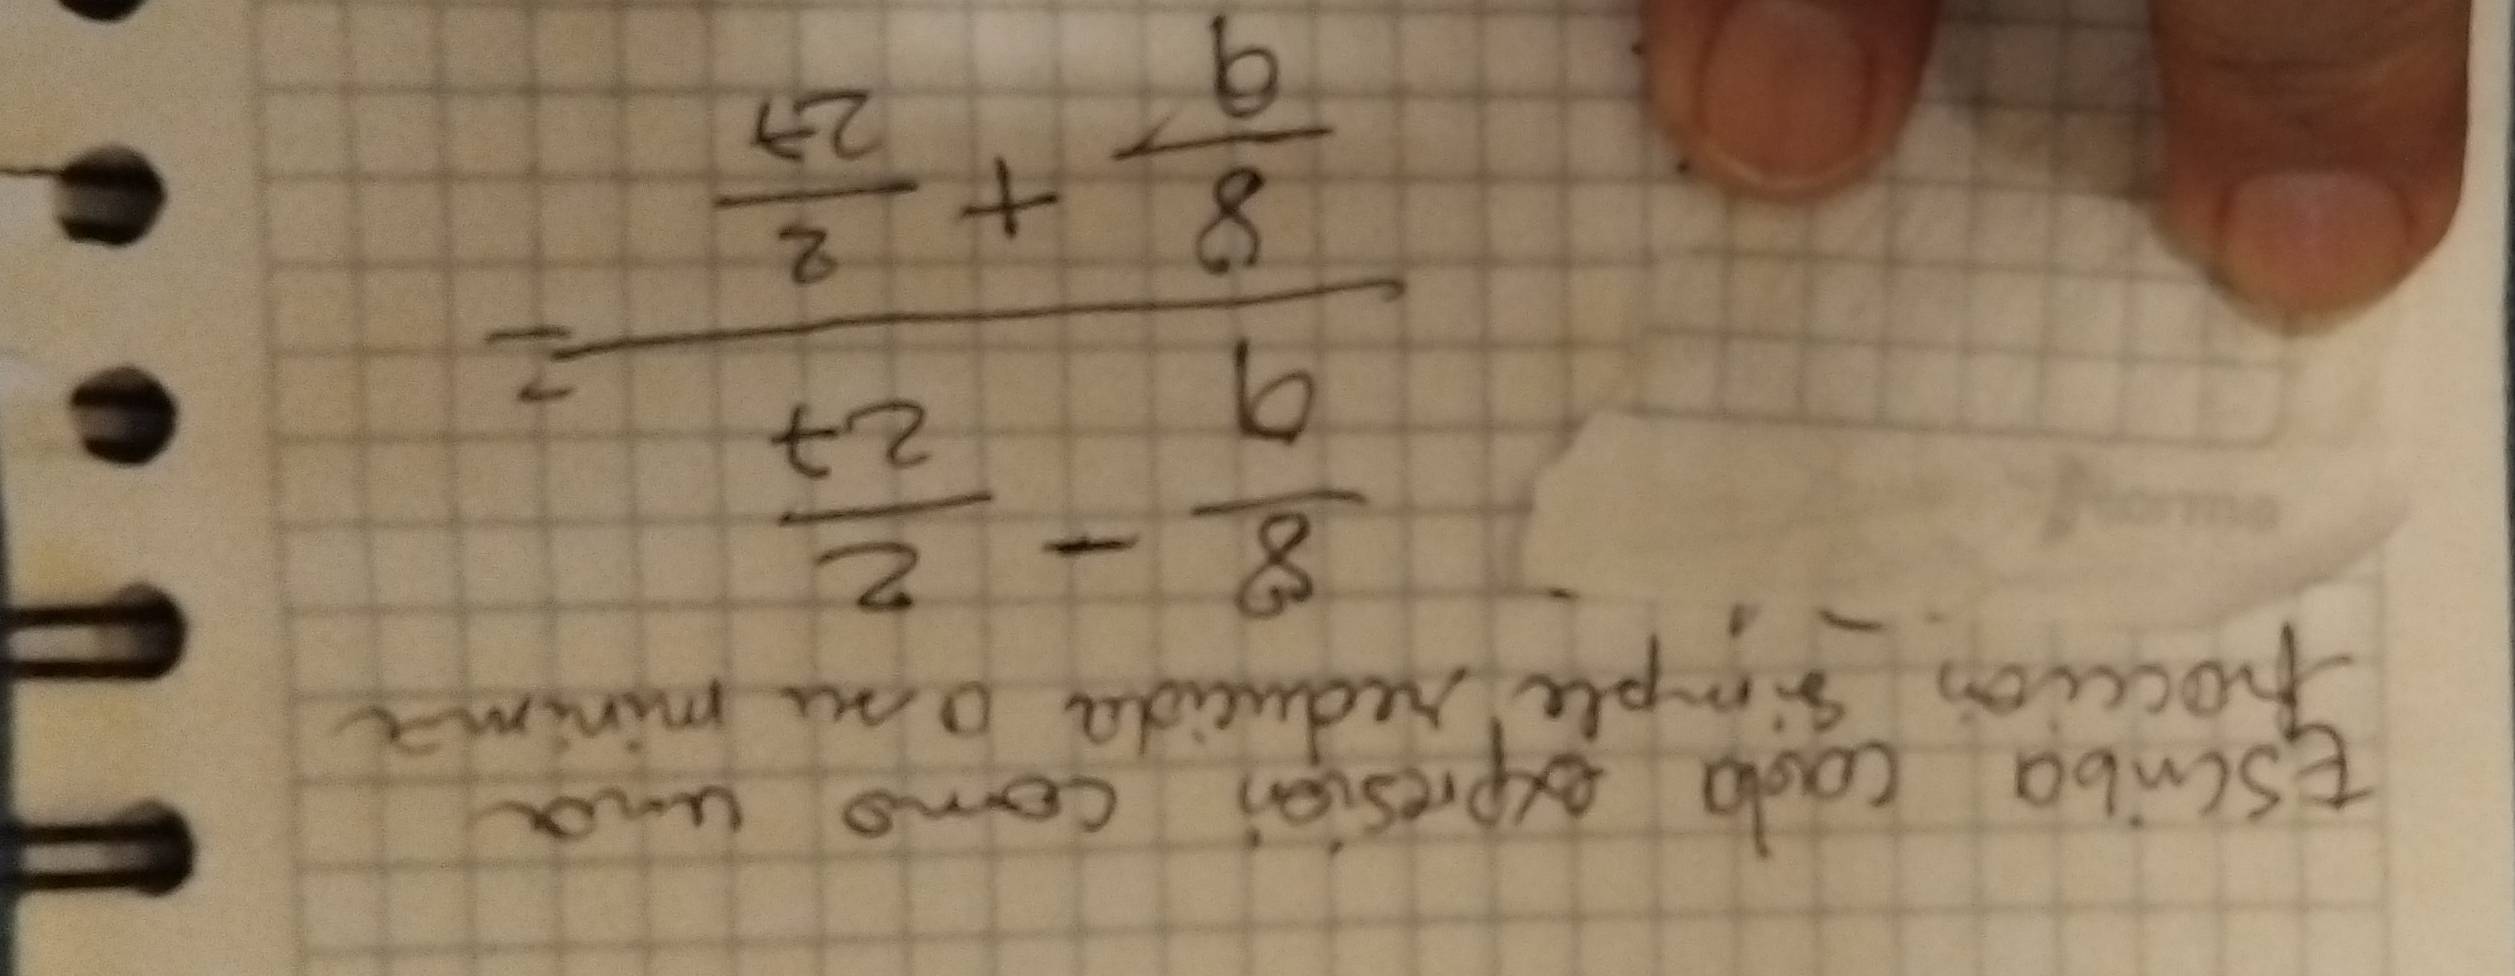 Escriba cada expresión como una
fracción simple reducida a su mínima
8/9 - 2/27
=
8/9 + 2/27